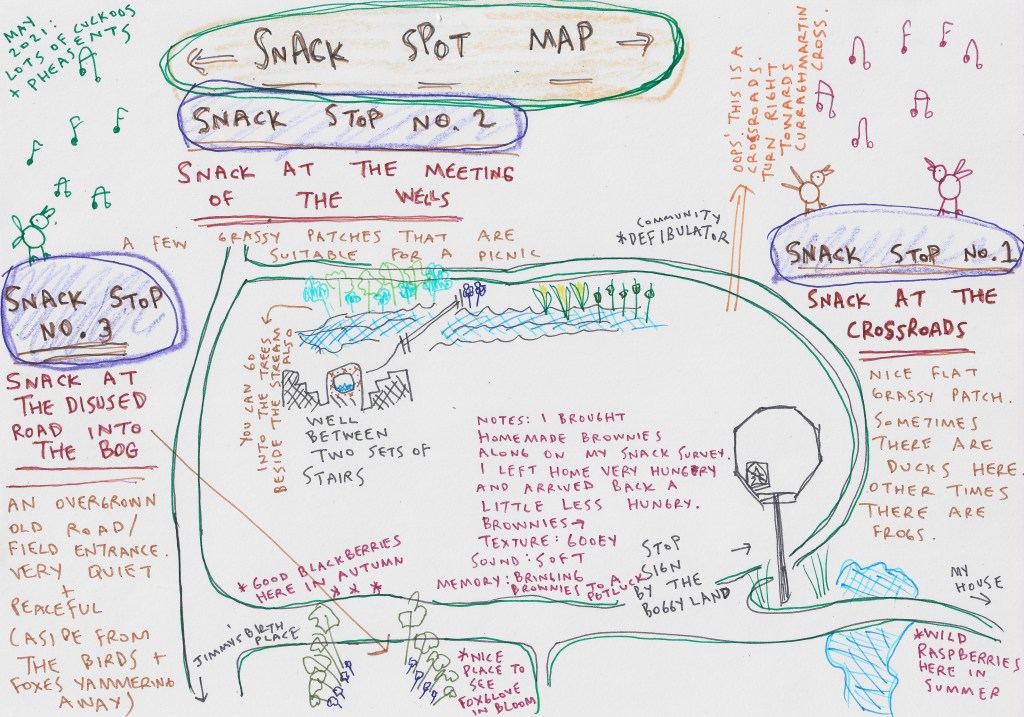 MAY
2021:
LOTS OF CUCKOOS
+ PHEASENTS
SNACK SPOT MAP
SNACK STOP NO. 2
SNACK AT THE MEETING
OF THE WELLS
A FEW GRASSY PATCHES THAT ARE
SUITABLE FOR A PICNIC
COMMUNITY
*DEFIBULATOR
OOPS! THIS IS A
CROSSROADS.
TURN RIGHT
TOWARDS
CURRAGHMARTIN
CROSS.
SNACK STOP NO.1
SNACK AT THE
CROSSROADS
NICE FLAT
GRASSY PATCH.
SOMETIMES
THERE ARE
DUCKS HERE.
OTHER TIMES
THERE ARE
FROGS.
SNACK STOP
NO.3
SNACK AT
THE DISUSED
ROAD INTO
THE BOG
AN OVERGROWN
OLD ROAD/
FIELD ENTRANCE.
VERY QUIET
+
PEACEFUL
(ASIDE FROM
THE BIRDS +
FOXES YAMMERING
AWAY)
YOU CAN GO
INTO THE TREES
BESIDE THE STREAM
ALSO
WELL
BETWEEN
TWO SETS OF
STAIRS
NOTES: I BROUGHT
HOMEMADE BROWNIES
ALONG ON MY SNACK SURVEY.
I LEFT HOME VERY HUNGRY
AND ARRIVED BACK A
LITTLE LESS HUNGRY.
BROWNIES →
TEXTURE: GOOEY
SOUND: SOFT
MEMORY: BRINGING
BROWNIES TO A
POTLUCK
STOP
SIGN
BY THE
BOGGY LAND
*GOOD BLACKBERRIES
HERE IN AUTUMN
* * *
JIMMY'S BIRTH
PLACE
*NICE
PLACE TO
SEE
FOXGLOVE
IN BLOOM
MY
HOUSE
*WILD
RASPBERRIES
HERE IN
SUMMER